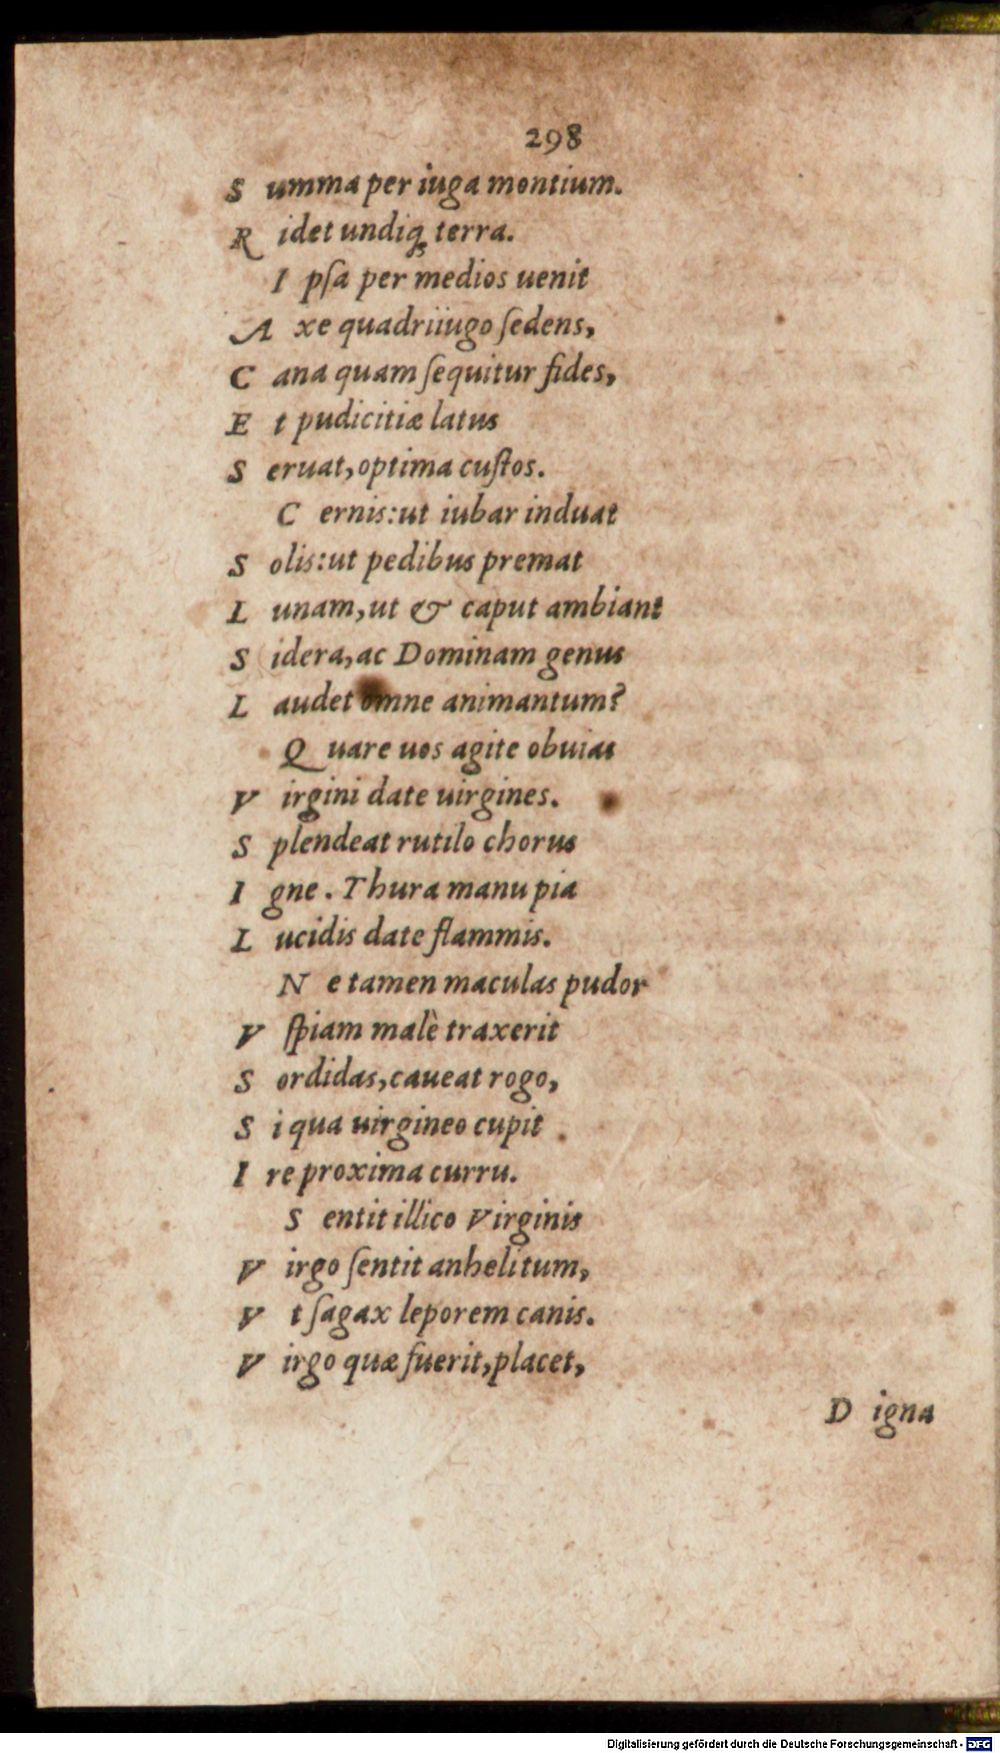 298
S umma per iuga montium.
R idet undiq; terra.
I pſa per medios uenit
A xe quadriiugo ſedens,
C ana quam ſequitur fides,
E t pudicitiæ latus
S eruat, optima cuſtos.
C ernis: ut iubar induat
S olis: ut pedibus premat
L unam, ut & caput ambiant
S idera, ac Dominam genus
L audet omne animantum?
Q uare uos agite obuias
V irgini date uirgines.
S plendeat rutilo chorus
I gne. Thura manu pia
L ucidis date flammis.
N e tamen maculas pudor
V ſpiam malè traxerit
S ordidas, caueat rogo,
S i qua uirgineo cupit
I re proxima curru.
S entit illico Virginis
V irgo ſentit anhelitum,
V t ſagax leporem canis.
V irgo quæ fuerit, placet,
D igna
Digitalisierung gefördert durch die Deutsche Forschungsgemeinschaft - DFG